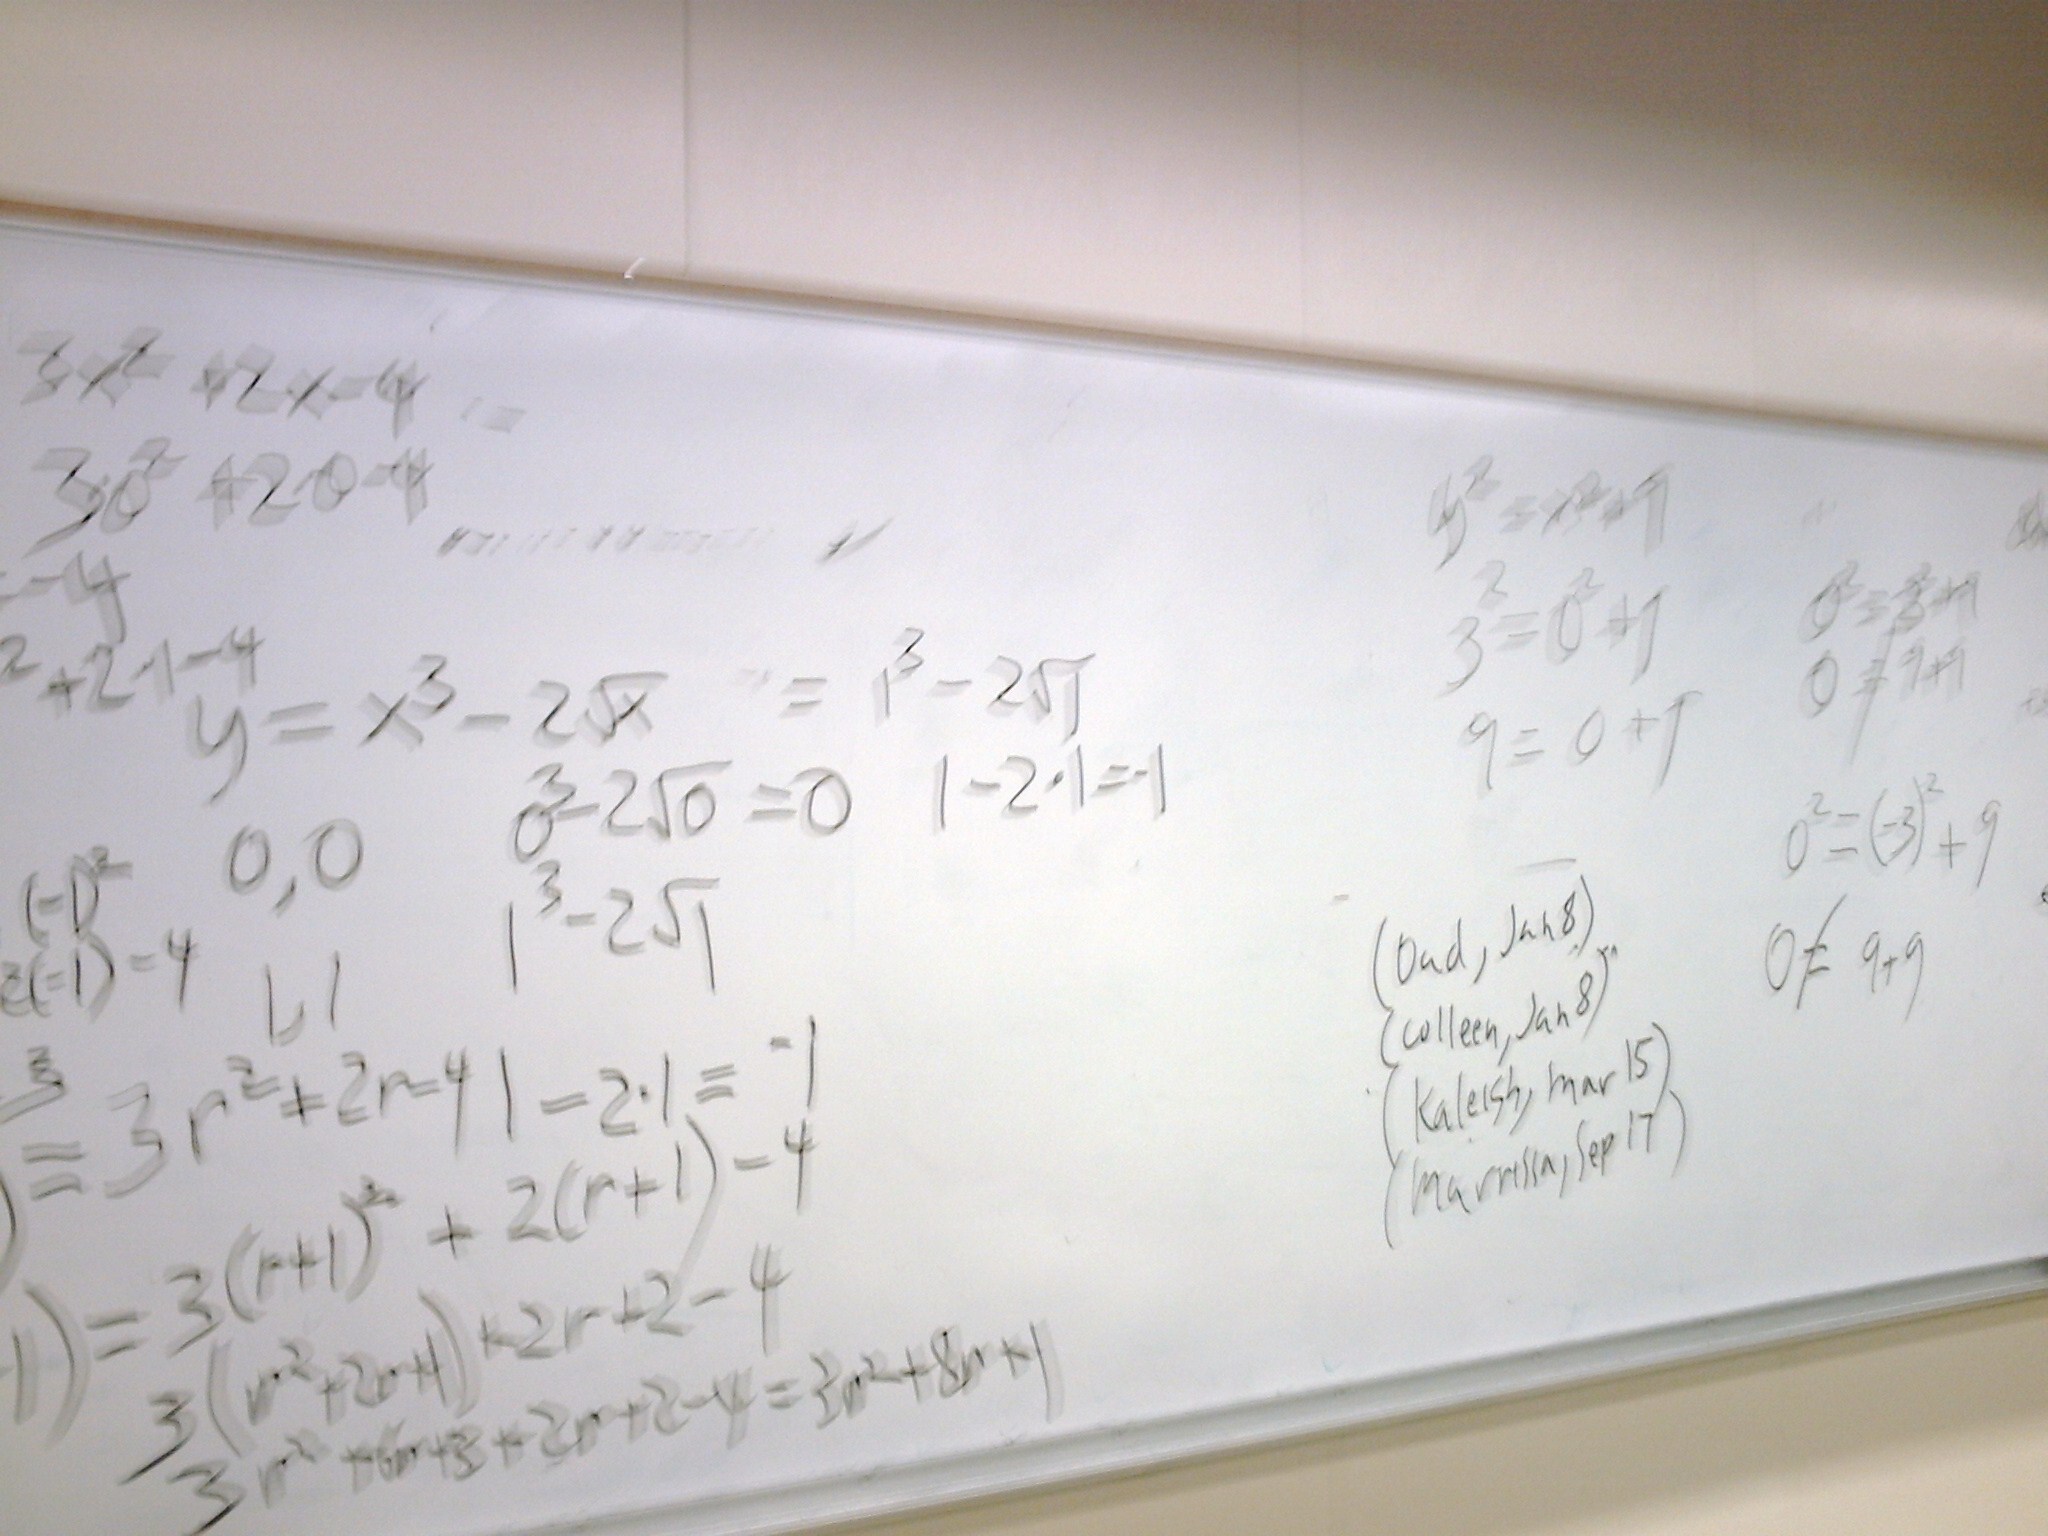 3x² +2x-4 =
3·0² +2·0-4
=-4
² +2·1-4
y = x³ - 2√x = 1³ - 2√1
0³-2√0 =0 1-2·1=-1
0,0
(-1)²
1³-2√1
2(-1)-4
1,1
= 3r²+2r-4 1-2·1=-1
1) = 3(r+1)² + 2(r+1)-4
3(r²+2r+1)+2r+2-4
3r²+6r+3+2r+2-4=3r²+8r+1
y²=x²+9
3²=0²+9
9=0+9
0²=3²+9
0≠9+9
0²=(-3)²+9
0≠ 9+9
(Dad, Jan 8)
(Colleen, Jan 8)
(Kaleigh, Mar 15)
(Marrissa, Sep 17)